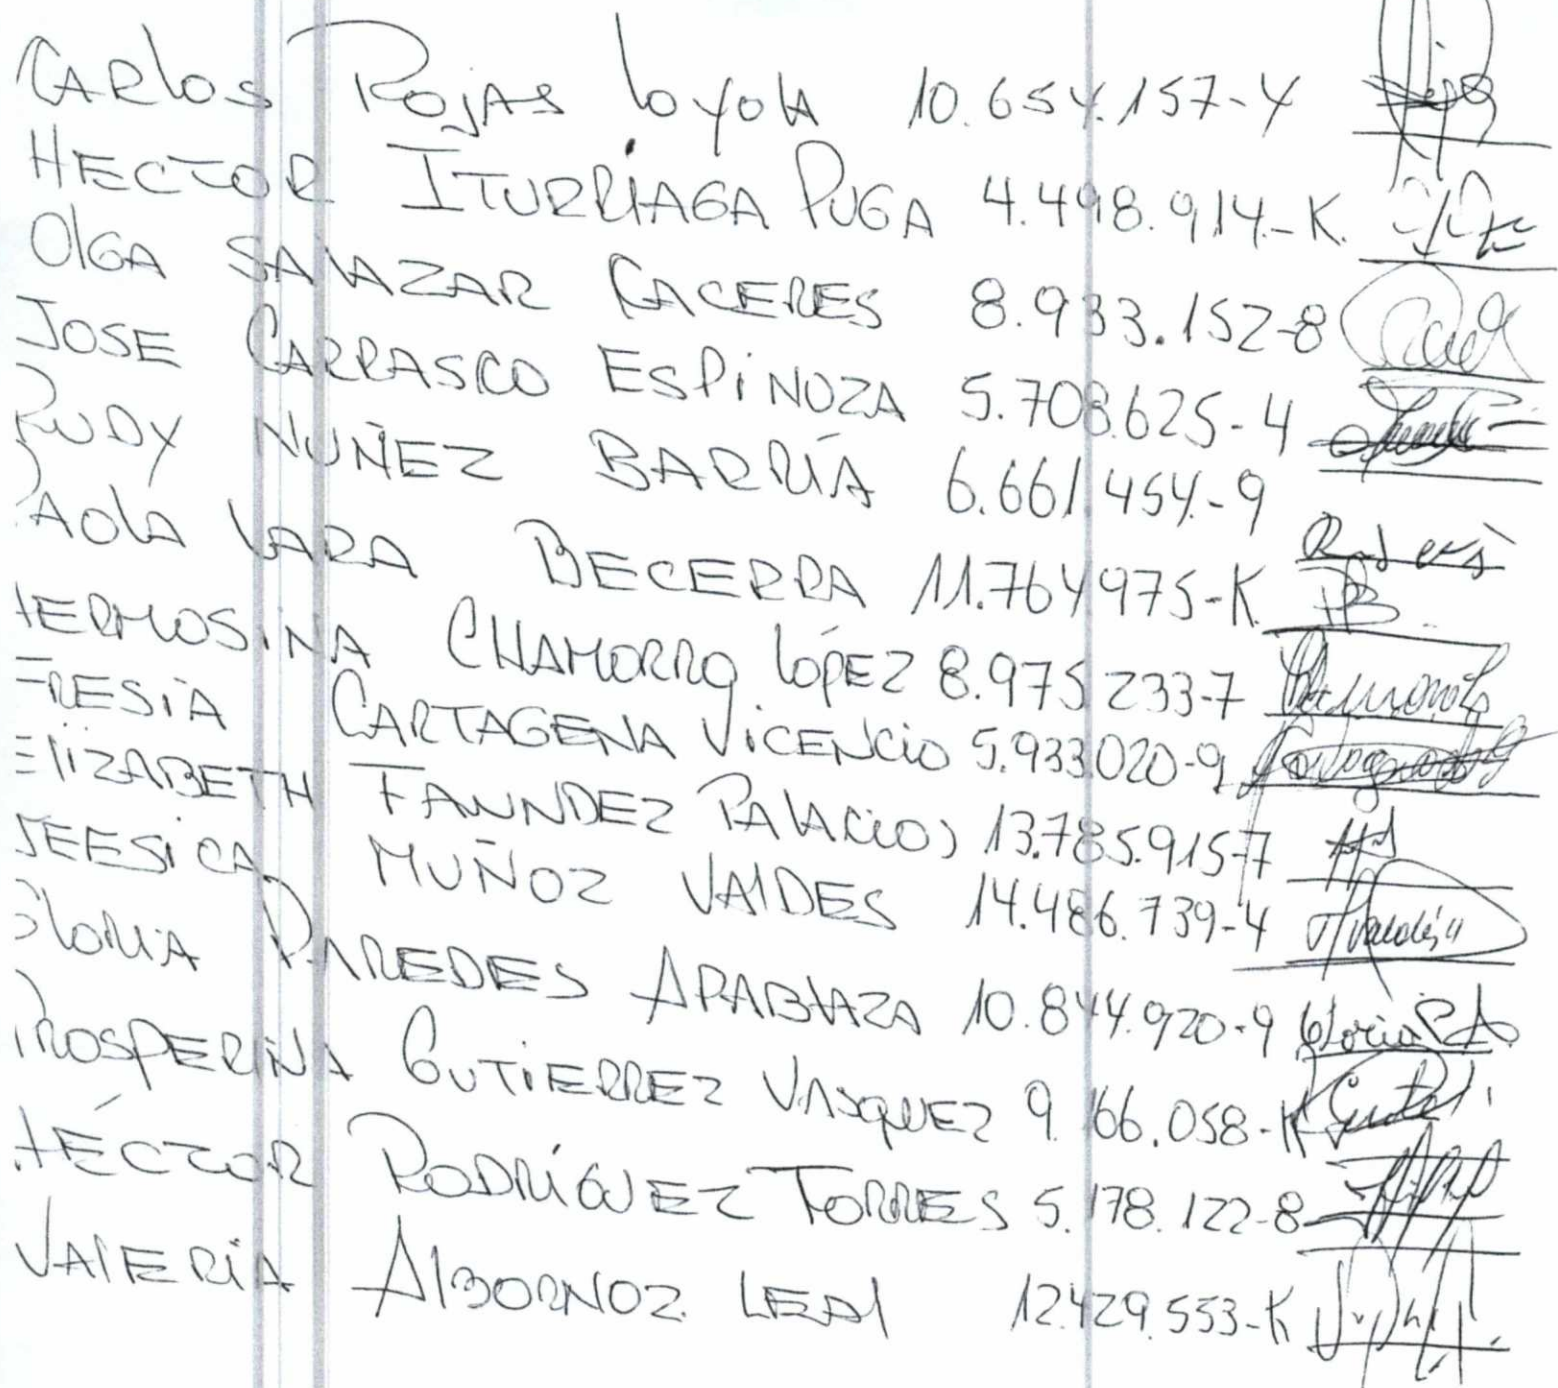 CARlos ROJAS loyola 10.654.157-4
HECTOR ITURRIAGA PUGA 4.498.914-K.
OlGA SALAZAR CACERES 8.933.152-8
JOSE CARRASCO ESPiNOZA 5.708.625-4
RUDY NUÑEZ BARRÍA 6.661.454-9
PAOlA LARA BECERRA 11.764.975-K
HERMOSINA CHAMORRO lÓPEZ 8.975.233-7
FRESiA CARTAGENA ViCENCiO 5.933.020-9
EliZABETH FAUNDEZ PAlACiOS 13.785.915-7
JEESiCA MUÑOZ VAlDES 14.486.739-4
GlORiA PAREDES ARABLAZA 10.844.920-9 Gloria P A
PROSPERiNA GUTiERREZ VASQUEZ 9.166.058-K
HÉCTOR RODRÍGUEZ TORRES 5.178.122-8
VAlERiA AlBORNOZ LEAl 12.429.553-K